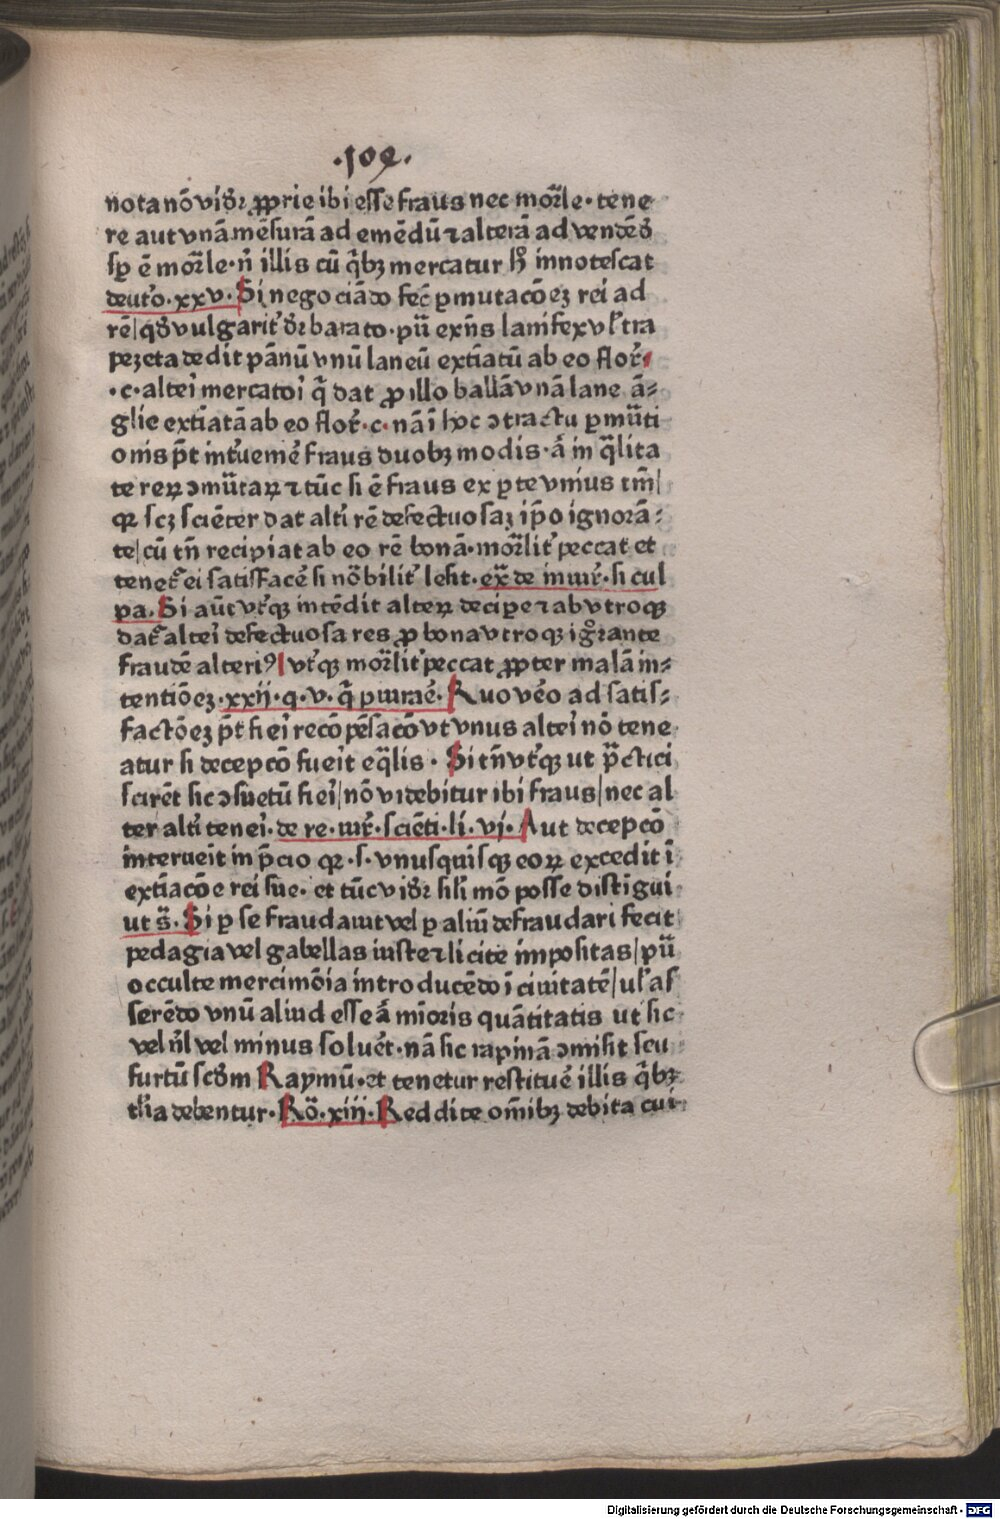 ·109·
nota nō vidr̄ ꝓprie ibi esse fraus nec mor̄le· tene
re aut vnā mēsurā ad emēdū ⁊ alterā ad vendēd̄
sꝑ ē mor̄le· n̄ illis cū qͥbꝫ mercatur h̄ innotescat
deut̓o· xxv· Si negociādo fec̄ ꝑmutacōeꝫ rei ad
rē/ qd̓ vulgarit̓ dr̄ barato· pū exn̄s lanifex vl̓ tra
pezeta dedit pānū vnū laneū extīatū ab eo flor̄
·c· altei̓ mercatoi̓ qͥ dat ꝓ illo ballā vnā lane ā⸗
glie extīatā ab eo flor̄· c· nā ī hoc ɔtractu ꝑmūti
onis pt̄ int̓uenē fraus duobꝫ modis· ā in qͣlita
te reꝝ ɔmūtaꝝ ⁊ tūc si ē fraus ex ꝑte vnius tm̄/
qꝛ scꝫ sciēter dat alti̓ rē defectuosaꝫ ip̄o ignorā⸗
te/ cū tn̄ recipiat ab eo rē bonā· mor̄lit̓ peccat et
tenet̓ ei satisfacē si nōbilit̓ lesit· ex̄ de iniur̄· si cul
pa. Si aūt vt̓qꝫ intēdit alteꝝ decipe ⁊ ab vtroqꝫ
dat̓ altei̓ defectuosa res ꝓ bona vtroqꝫ igͦrante
fraudē alteriꝰ/ vt̓qꝫ mor̄lit̓ peccat ꝓpter malā in⸗
tentiōeꝫ· xxij· q· v· qͥ piuraē· Ruo vēo ad satis⸗
factōeꝫ pt̄ fiei̓ recōpēsacō vt vnus altei̓ nō tene
atur si decepcō fuei̓t eqͣlis· Si tn̄ vt̓qꝫ ut pͣctici
scirēt sic ɔsuetū fiei̓/ nō videbitur ibi fraus/ nec al
ter alti̓ tenei̓· de re· iur̄· sciēti· li· vj· Aut decepcō
interueit in p̄cio qꝛ ·s· vnusquisqꝫ eoꝝ excedit ī
extīacōe rei sue· et tūc vidr̄ sil̓i mō posse distīgui
ut s̄· Si ꝑ se fraudauit vel ꝑ aliū defraudari fecit
pedagia vel gabellas iuste ⁊ licite impositas/ pū
occulte mercimōia introducēdo ī ciuitatē/ ul̓ as
serēdo vnū aliud esse ā mīoris quātitatis ut sic
vel nl̓ vel minus soluēt· nā sic rapinā ɔmisit seu
furtū scd̓m Raymū· et tenetur restituē illis qͥbꝫ
tl̓ia debentur· Rō· xiij· Reddite om̄ibꝫ debita cui
Digitalisierung gefördert durch die Deutsche Forschungsgemeinschaft - DFG